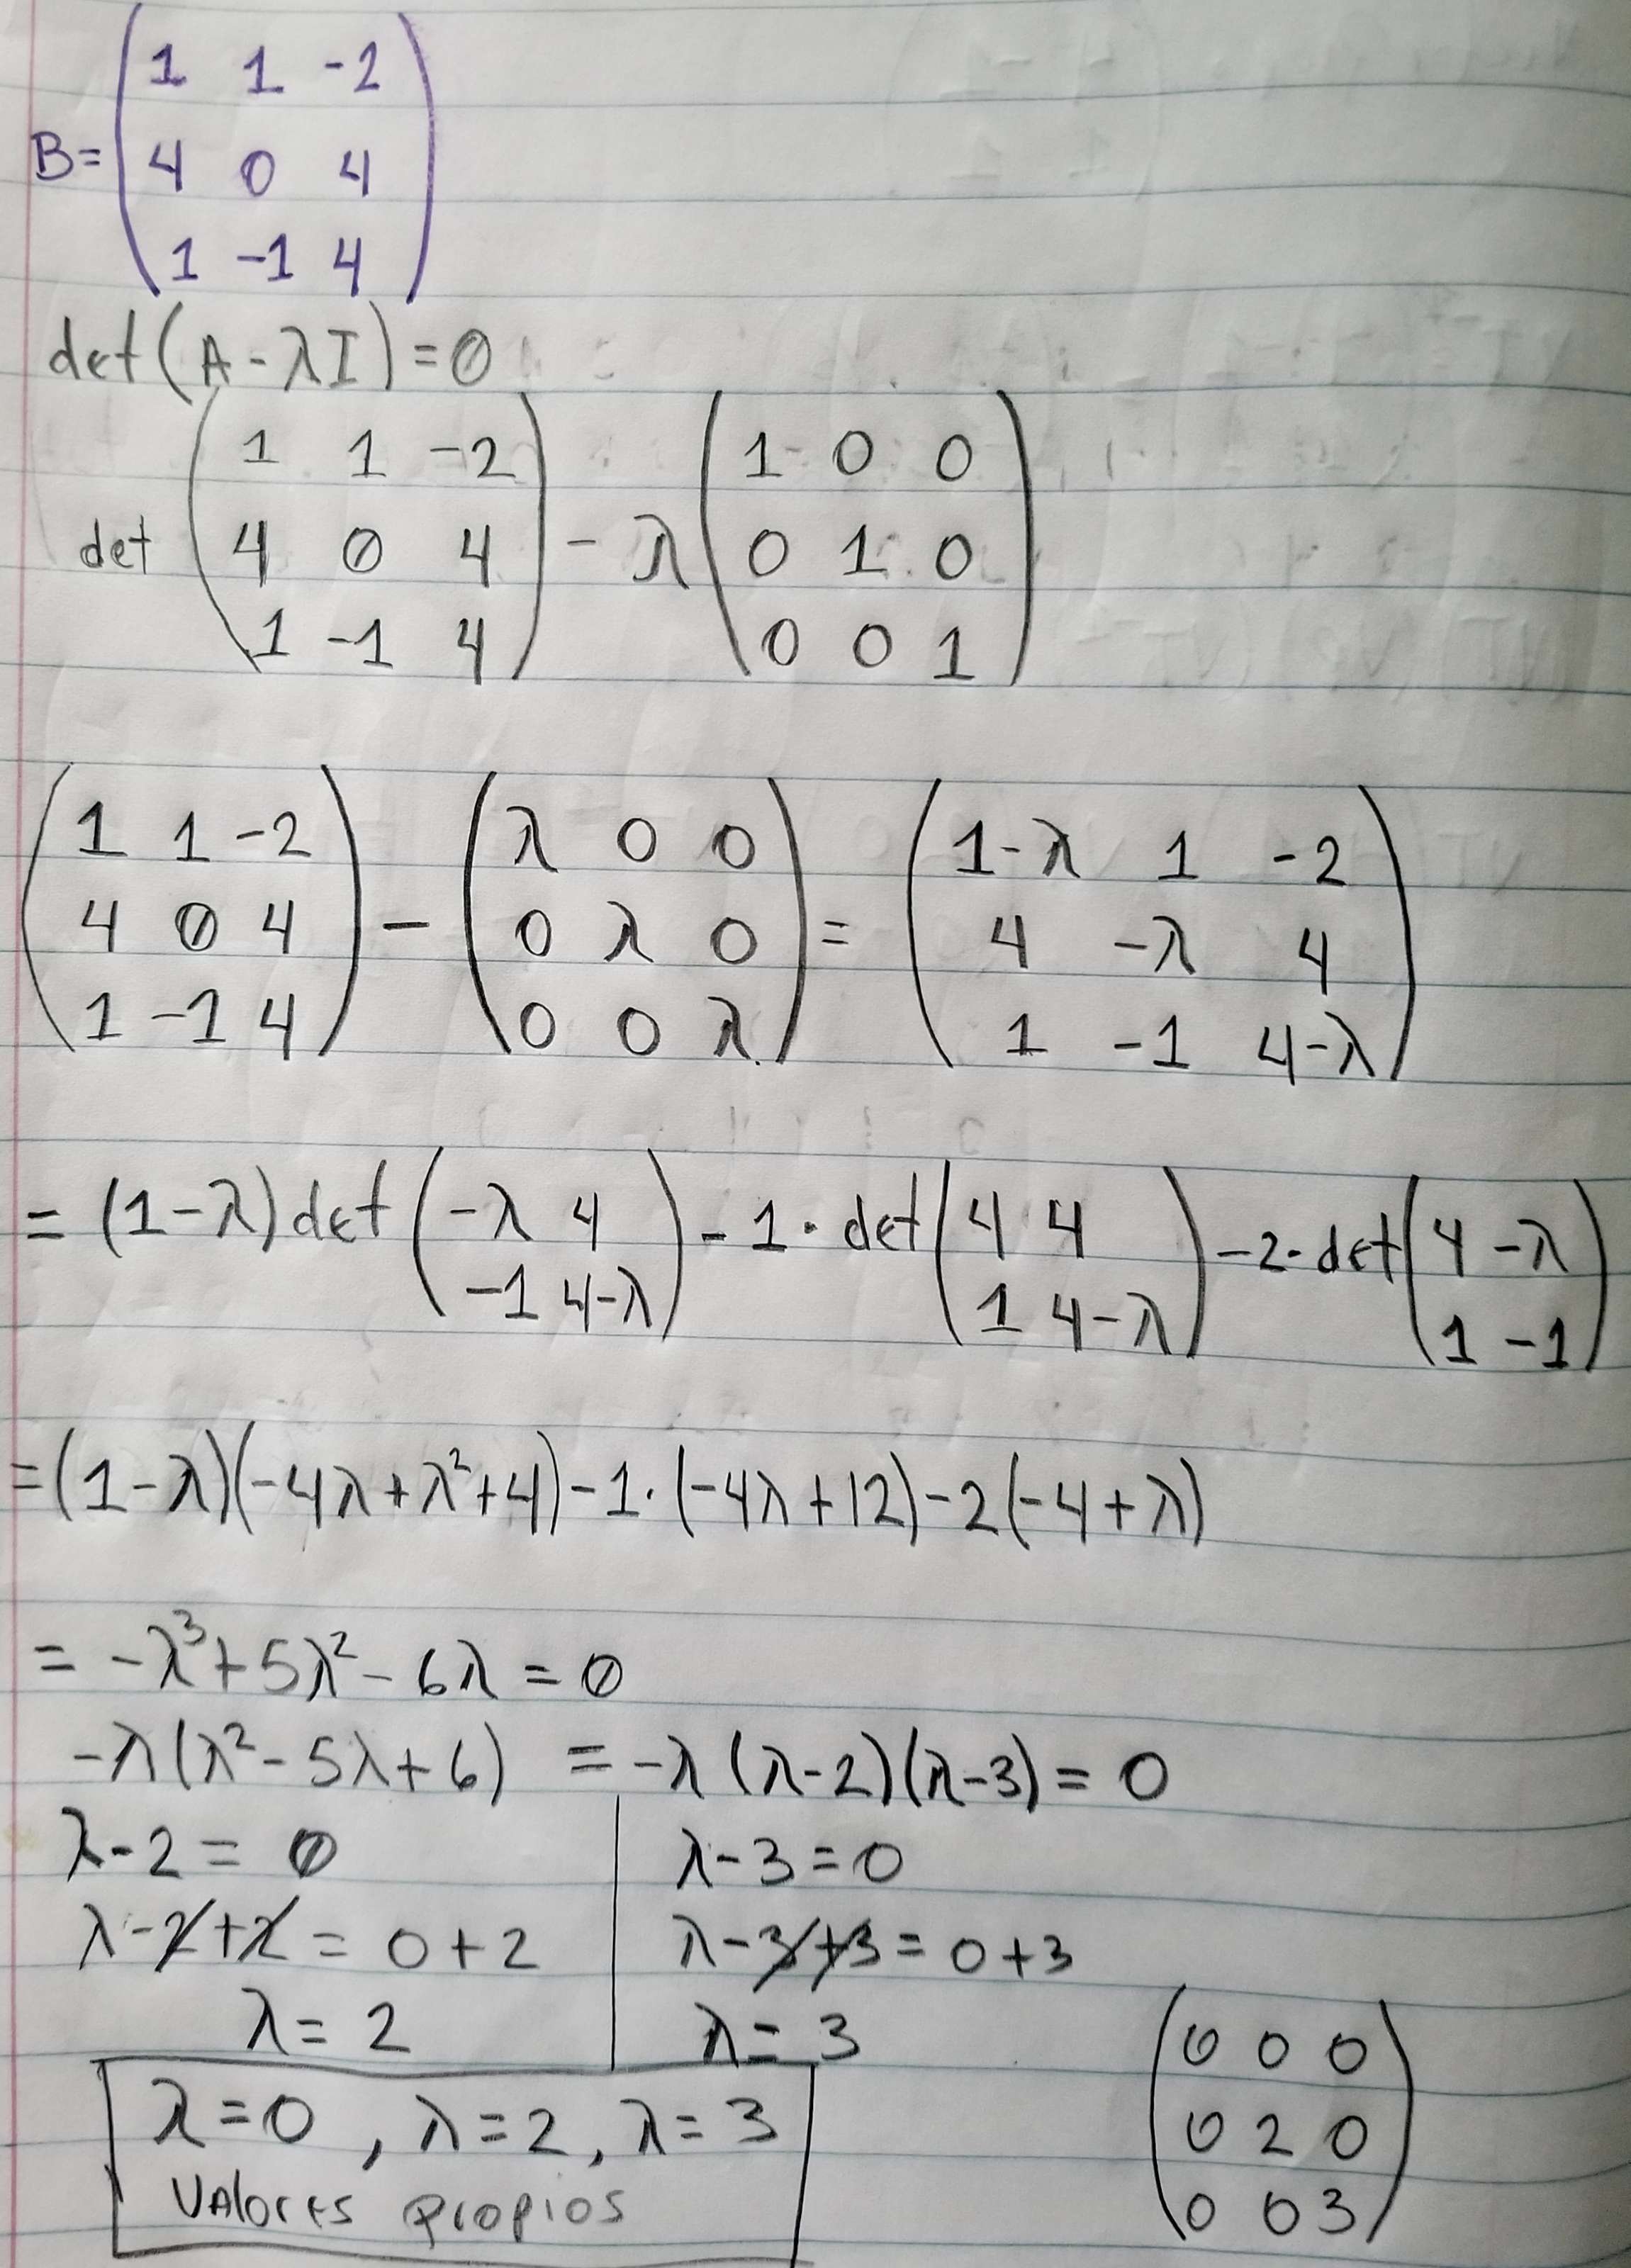 B = ( 1 1 -2
4 0 4
1 -1 4 )
det(A - λI) = 0
det ( 1 1 -2
4 0 4
1 -1 4 ) - λ ( 1 0 0
0 1 0
0 0 1 )
( 1 1 -2
4 0 4
1 -1 4 ) - ( λ 0 0
0 λ 0
0 0 λ ) = ( 1-λ 1 -2
4 -λ 4
1 -1 4-λ )
= (1-λ) det ( -λ 4
-1 4-λ ) - 1 · det ( 4 4
1 4-λ ) - 2 · det ( 4 -λ
1 -1 )
= (1-λ)(-4λ+λ²+4) - 1·(-4λ+12) - 2(-4+λ)
= -λ³+5λ²-6λ = 0
-λ(λ²-5λ+6) = -λ(λ-2)(λ-3) = 0
λ-2 = 0
λ-2+2 = 0+2
λ = 2
λ-3 = 0
λ-3+3 = 0+3
λ = 3
λ=0, λ=2, λ=3
Valores propios
( 0 0 0
0 2 0
0 0 3 )